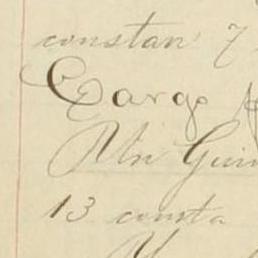 constan 7
Cargo
Un Guin
13 consta